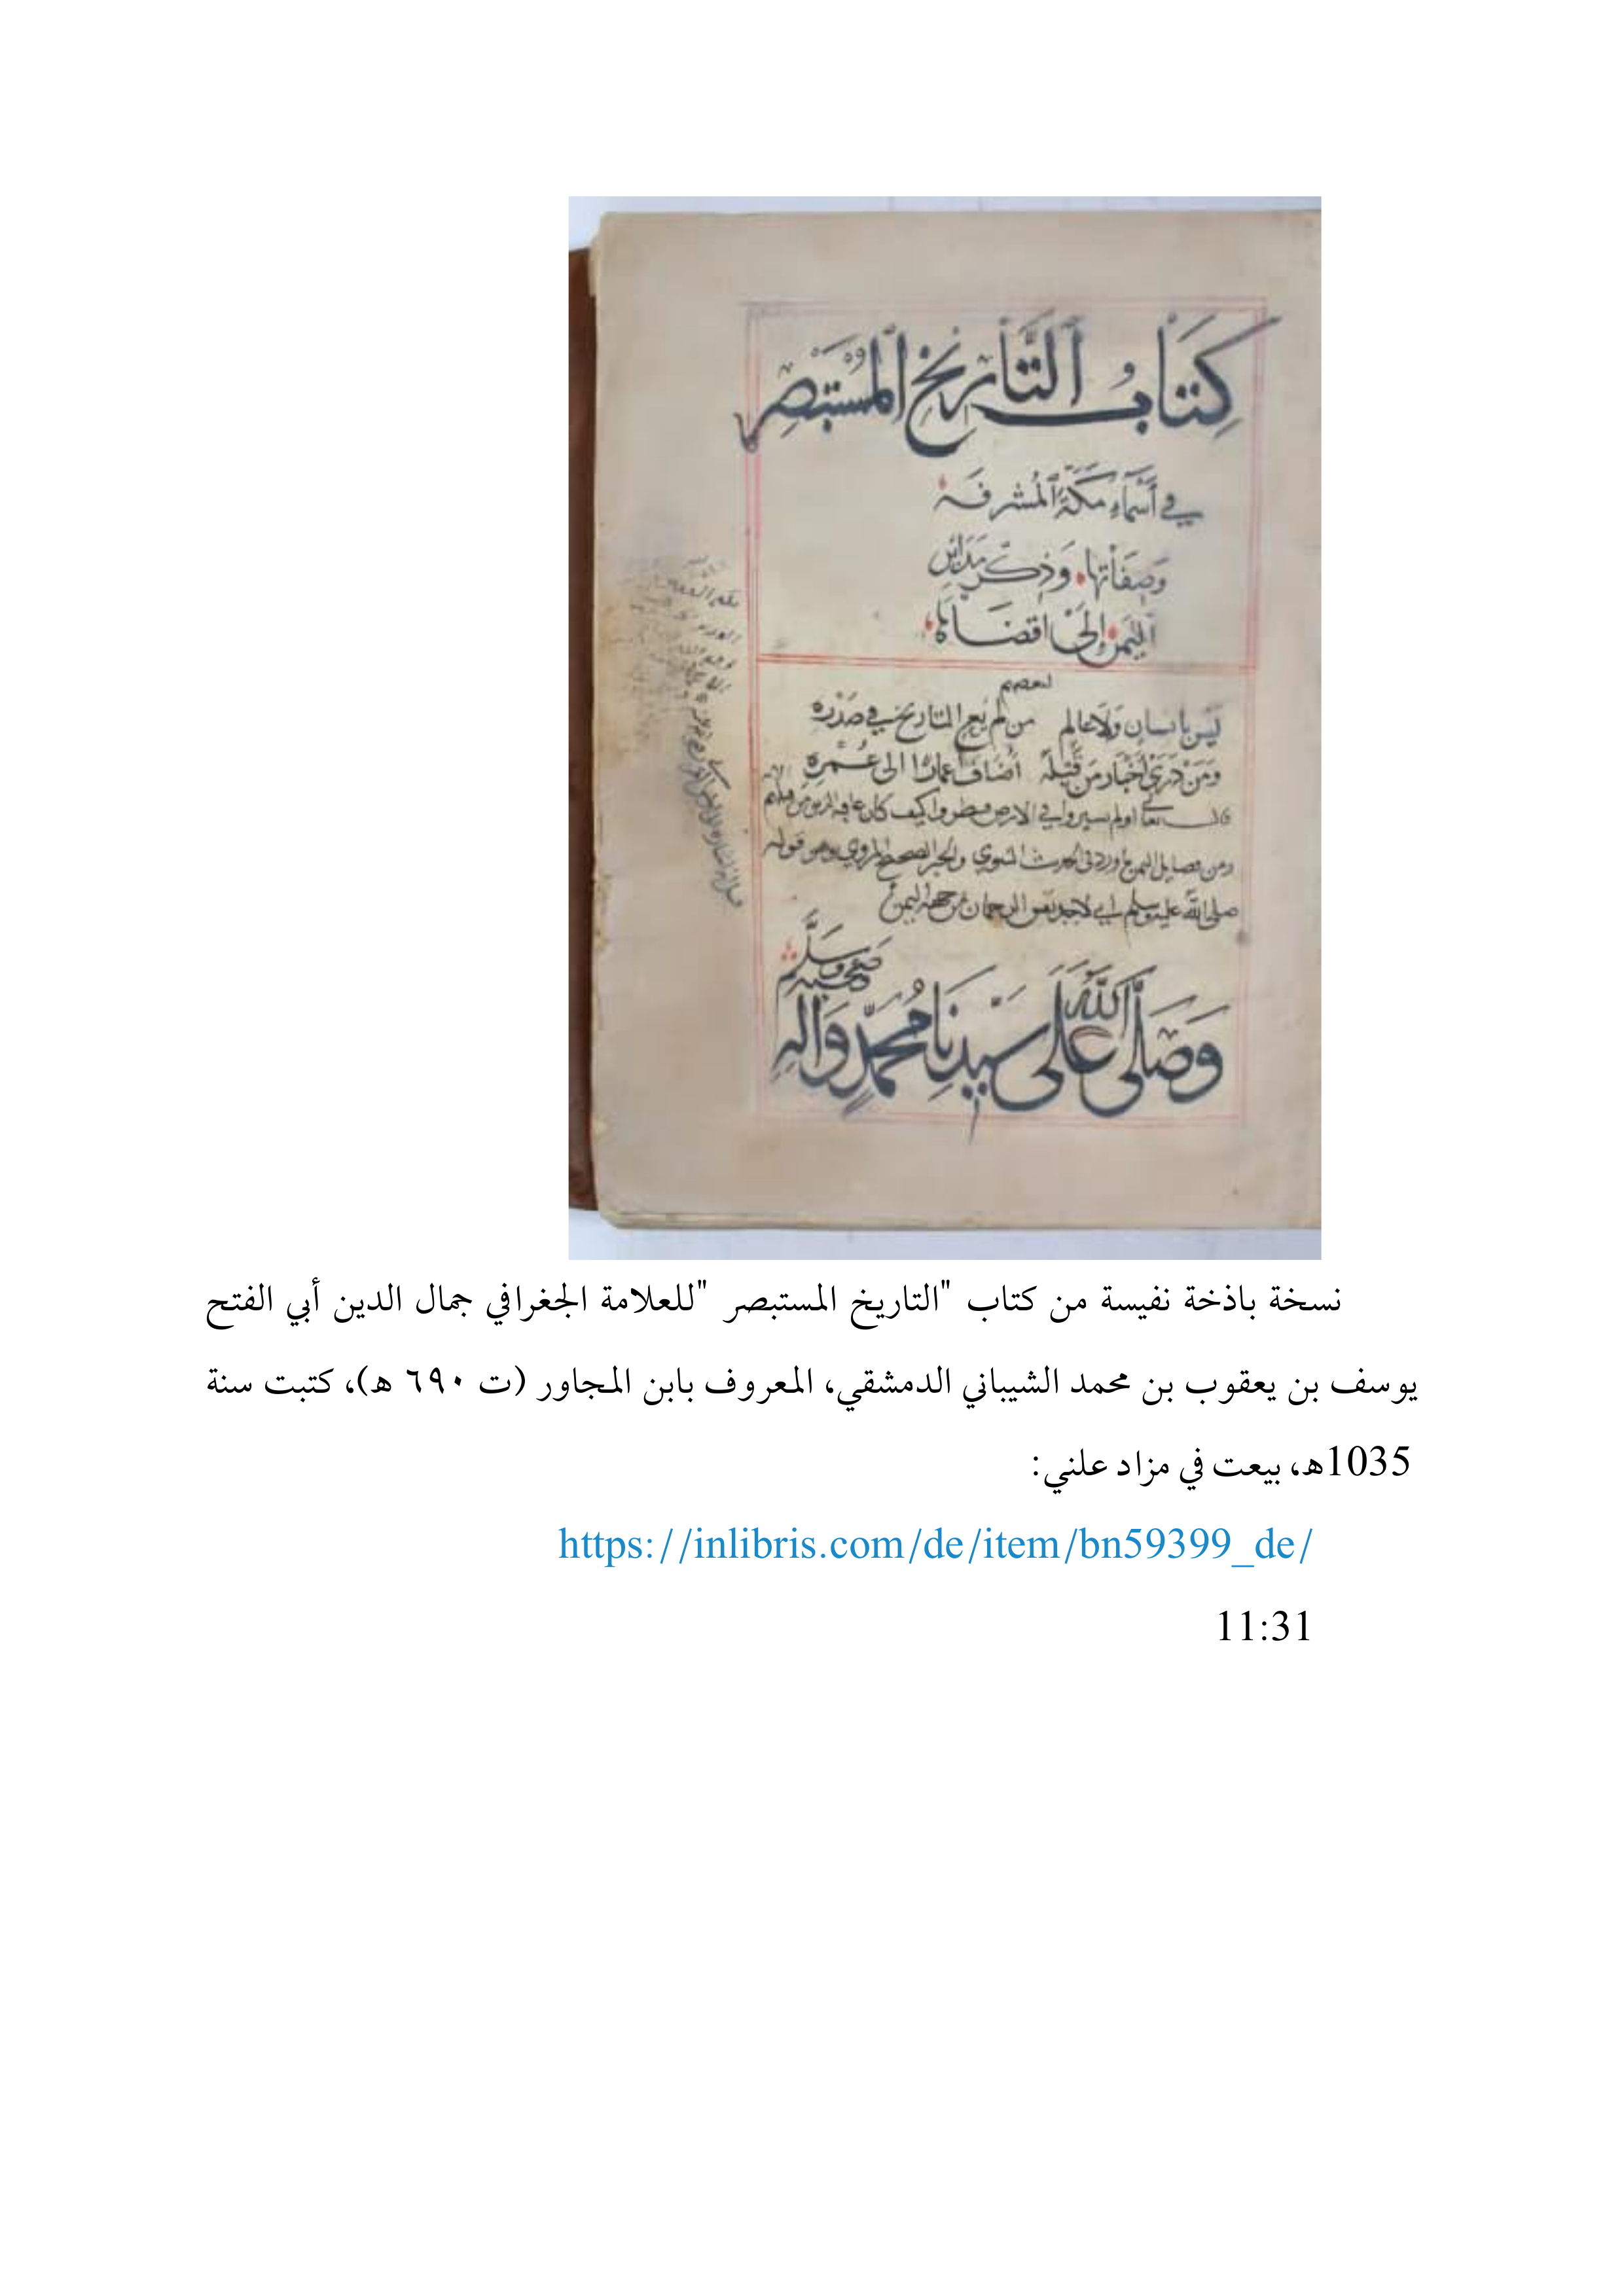 كِتَابُ التَّارِيخ المُسْتَبْصِر
في أَسْمَاءِ مَكَّةَ المُشرفَه
وَصِفَاتِهَا وَذِكر مَدَائِن
اليمن إلى اقصَاهَا
لبعضهم
ليسَ بانسانٍ وَلَا عَالِمٍ من لم يَعِ التاريخَ في صَدْرِه
وَمَن دَرَى أخبَار مَن قَبْلَهُ أضَافَ أعمارًا الى عُمْرِه
قال تعالى اولم يسيروا في الارض فينظروا كيف كان عاقبة الذين من قبلهم
ومن فضايل اليمن ما ورد في الحديث النبوي والخبر الصحيح المروي وهو قوله
صلى الله عليه وسلم اني لاجد نفس الرحمان من جهة اليمن
وَصَلَّى اللهُ عَلَى سَيِّدِنَا مُحَمَّدٍ وَآلِهِ
وَصَحْبِهِ وَسَلَّم
نسخة باذخة نفيسة من كتاب "التاريخ المستبصر "للعلامة الجغرافي جمال الدين أبي الفتح
يوسف بن يعقوب بن محمد الشيباني الدمشقي، المعروف بابن المجاور (ت ٦٩٠ ه)، كتبت سنة
1035ه، بيعت في مزاد علني:
https://inlibris.com/de/item/bn59399_de/
11:31